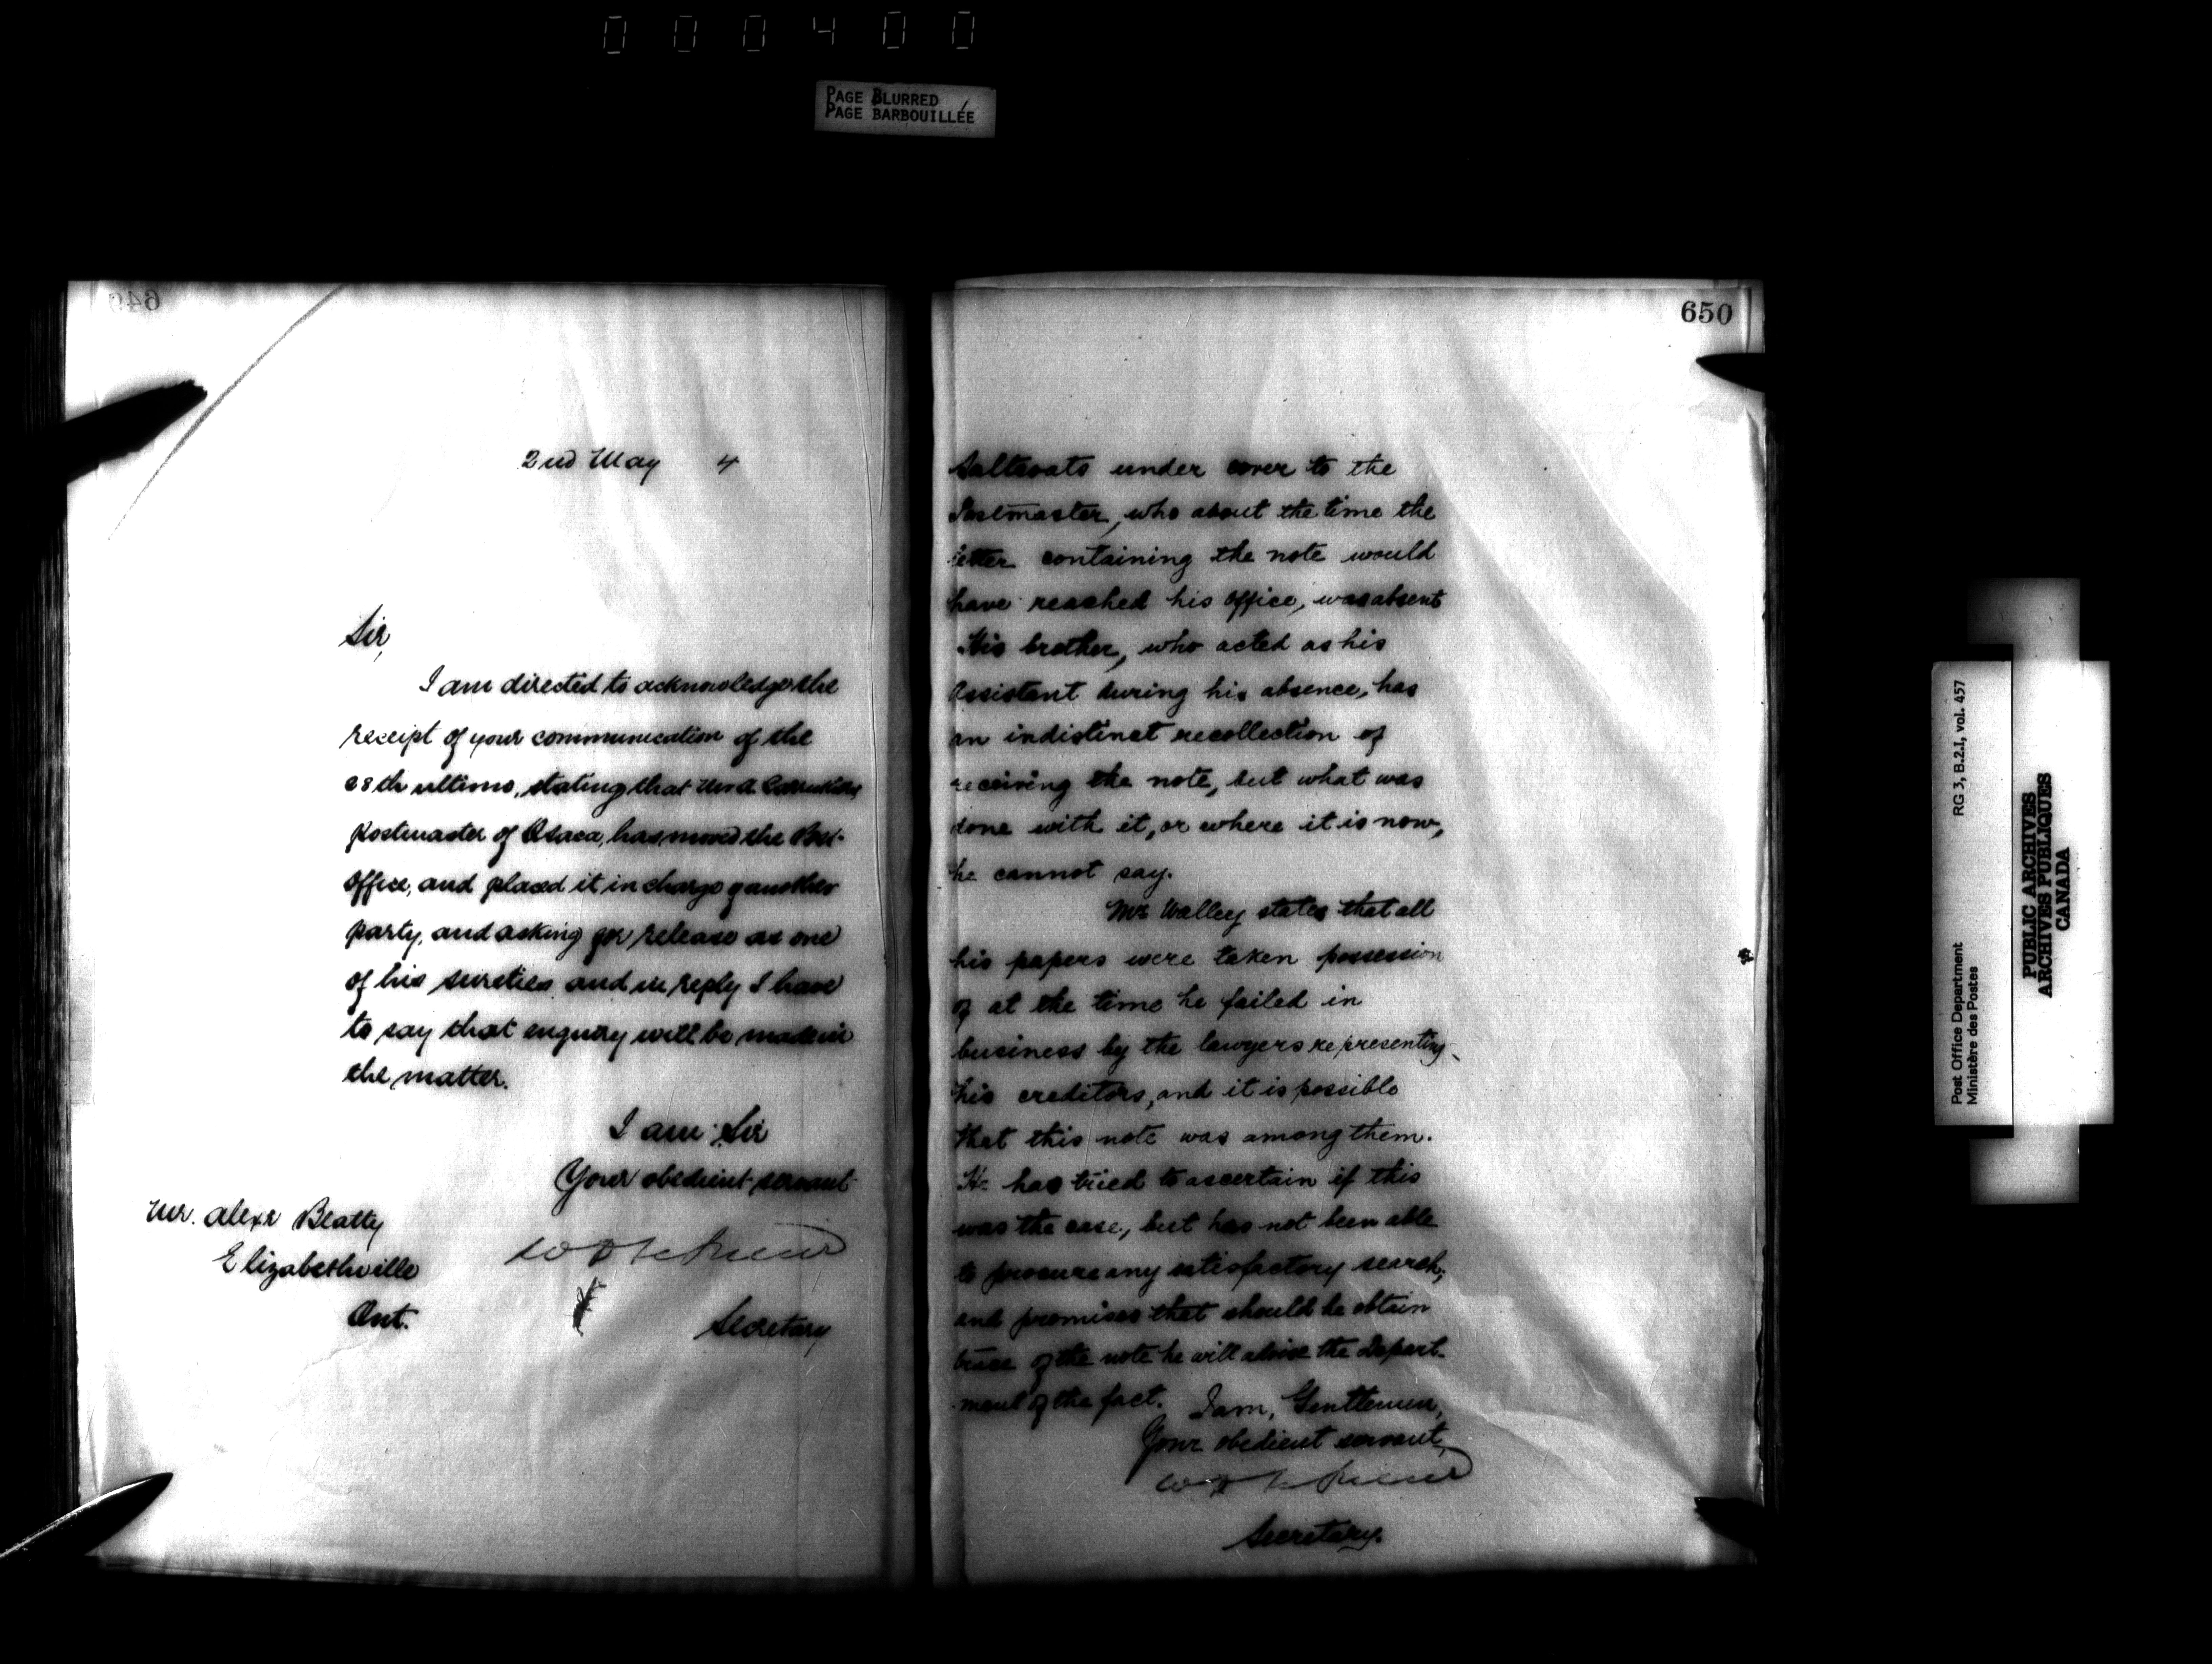 000400
PAGE BLURRED
PAGE BARBOUILLÉE
649
2nd May 4
Sir,
I am directed to acknowledge the
receipt of your communication of the
28th ultimo, stating that Mr A.
Postmaster of Osaca, has moved the Post-
Office, and placed it in charge of another
party, and asking for release as one
of his sureties, and in reply I have
to say that enquiry will be made in
the matter.
I am, Sir
Your obedient servant
Mr. Alexr Beatty
Elizabethville
Ont.
Secretary
650
Saltcoats under cover to the
Postmaster, who about the time the
letter containing the note would
have reached his office, was absent
His brother, who acted as his
Assistant during his absence, has
an indistinct recollection of
receiving the note, but what was
done with it, or where it is now,
he cannot say.
Mr Walley states that all
his papers were taken possession
of at the time he failed in
business by the lawyers representing
his creditors, and it is possible
that this note was among them.
He has tried to ascertain if this
was the case, but has not been able
to procure any satisfactory search,
and promises that should he obtain
trace of the note he will advise the Depart-
ment of the fact. I am, Gentlemen,
Your obedient servant,
Secretary.
Post Office Department
Ministère des Postes
RG 3, B.2.I, vol. 457
PUBLIC ARCHIVES
ARCHIVES PUBLIQUES
CANADA